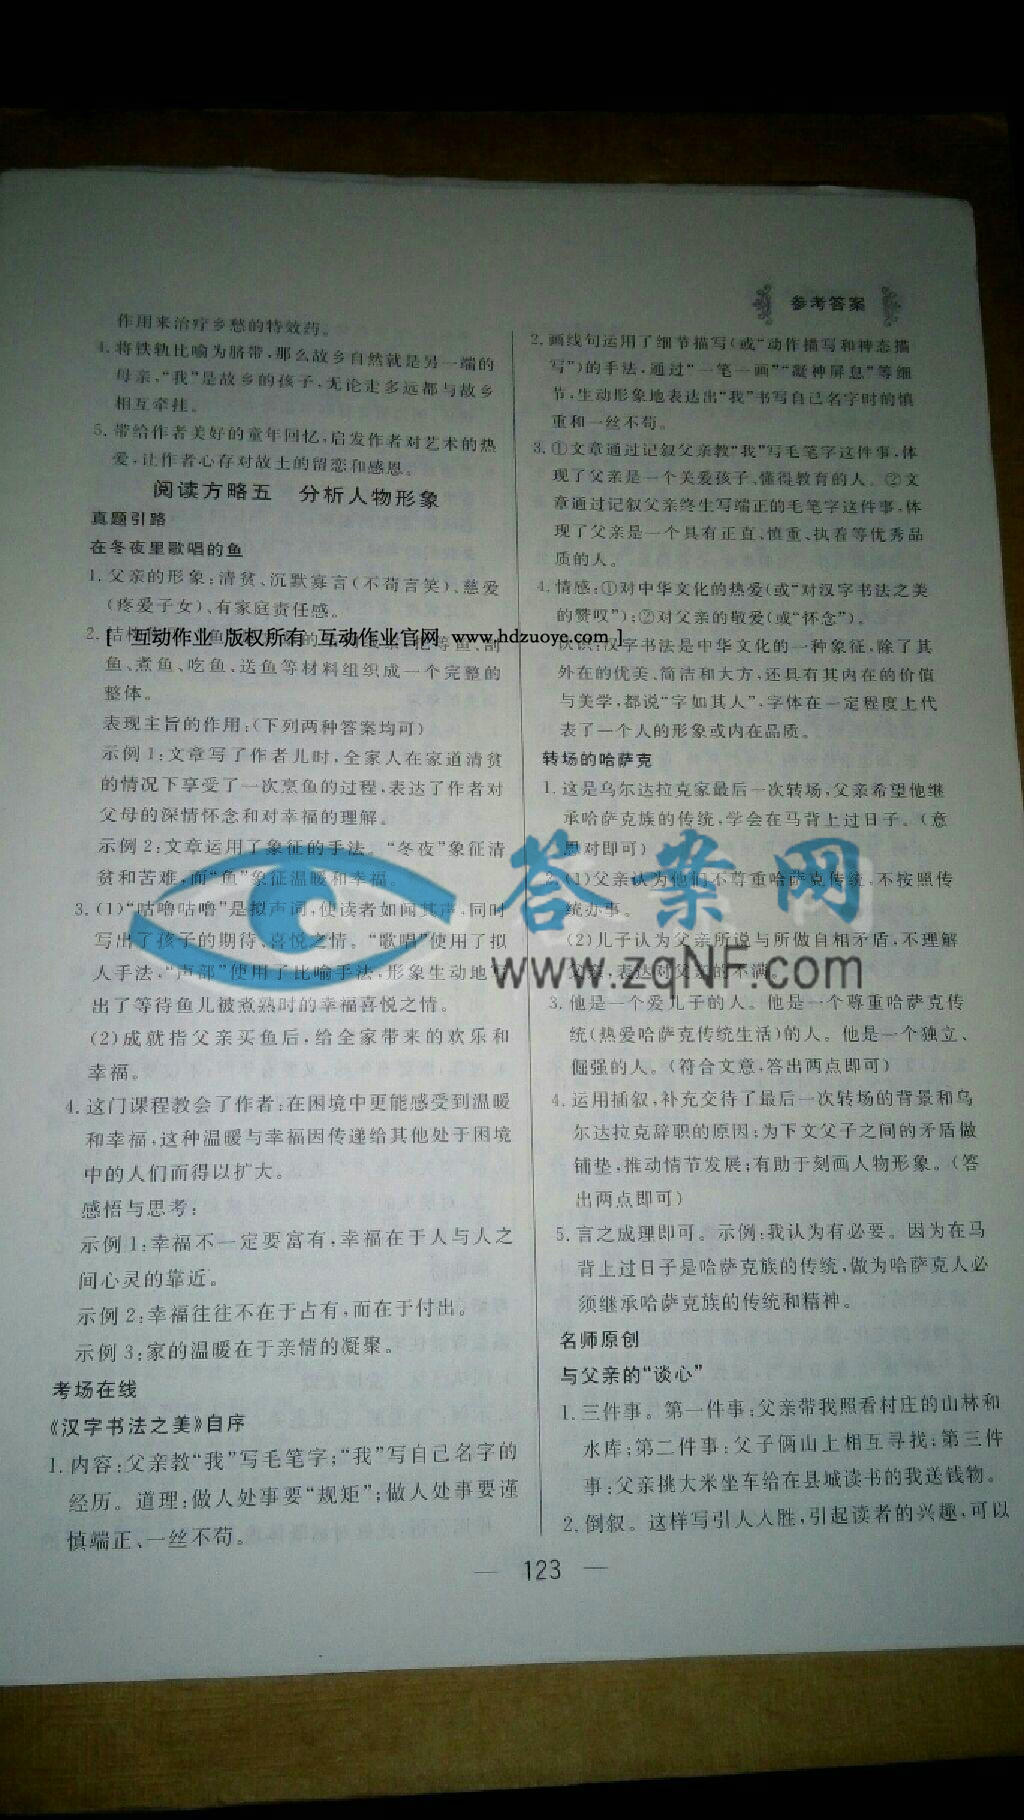 参考答案
作用来治疗乡愁的特效药。
4. 将铁轨比喻为脐带,那么故乡自然就是另一端的
母亲,“我”是故乡的孩子,无论走多远都与故乡
相互牵挂。
5. 带给作者美好的童年回忆,启发作者对艺术的热
爱,让作者心存对故土的留恋和感恩。
阅读方略五 分析人物形象
真题引路
在冬夜里歌唱的鱼
1. 父亲的形象:清贫、沉默寡言(不苟言笑)、慈爱
(疼爱子女)、有家庭责任感。
[ 互动作业 版权所有 互动作业官网 www.hdzuoye.com ]
鱼、煮鱼、吃鱼、送鱼等材料组织成一个完整的
整体。
表现主旨的作用:(下列两种答案均可)
示例1:文章写了作者儿时,全家人在家道清贫
的情况下享受了一次烹鱼的过程,表达了作者对
父母的深情怀念和对幸福的理解。
示例2:文章运用了象征的手法。“冬夜”象征清
贫和苦难,而“鱼”象征温暖和幸福。
3. (1)“咕噜咕噜”是拟声词,使读者如闻其声,同时
写出了孩子的期待、喜悦之情。“歌唱”使用了拟
人手法,“声部”使用了比喻手法,形象生动地写
出了等待鱼儿被煮熟时的幸福喜悦之情。
(2)成就指父亲买鱼后,给全家带来的欢乐和
幸福。
4. 这门课程教会了作者:在困境中更能感受到温暖
和幸福,这种温暖与幸福因传递给其他处于困境
中的人们而得以扩大。
感悟与思考:
示例1:幸福不一定要富有,幸福在于人与人之
间心灵的靠近。
示例2:幸福往往不在于占有,而在于付出。
示例3:家的温暖在于亲情的凝聚。
考场在线
《汉字书法之美》自序
1. 内容:父亲教“我”写毛笔字;“我”写自己名字的
经历。道理:做人处事要“规矩”;做人处事要谨
慎端正、一丝不苟。
2. 画线句运用了细节描写(或“动作描写和神态描
写”)的手法,通过“一笔一画”“凝神屏息”等细
节,生动形象地表达出“我”书写自己名字时的慎
重和一丝不苟。
3. ①文章通过记叙父亲教“我”写毛笔字这件事,体
现了父亲是一个关爱孩子、懂得教育的人。②文
章通过记叙父亲终生写端正的毛笔字这件事,体
现了父亲是一个具有正直、慎重、执着等优秀品
质的人。
4. 情感:①对中华文化的热爱(或“对汉字书法之美
的赞叹”);②对父亲的敬爱(或“怀念”)。
认识:汉字书法是中华文化的一种象征,除了其
外在的优美、简洁和大方,还具有其内在的价值
与美学,都说“字如其人”,字体在一定程度上代
表了一个人的形象或内在品质。
转场的哈萨克
1. 这是乌尔达拉克家最后一次转场,父亲希望他继
承哈萨克族的传统,学会在马背上过日子。(意
思对即可)
2. (1)父亲认为他们不尊重哈萨克传统,不按照传
统办事。
(2)儿子认为父亲所说与所做自相矛盾,不理解
父亲,表达对父亲的不满。
3. 他是一个爱儿子的人。他是一个尊重哈萨克传
统(热爱哈萨克传统生活)的人。他是一个独立、
倔强的人。(符合文意,答出两点即可)
4. 运用插叙,补充交待了最后一次转场的背景和乌
尔达拉克辞职的原因;为下文父子之间的矛盾做
铺垫,推动情节发展;有助于刻画人物形象。(答
出两点即可)
5. 言之成理即可。示例:我认为有必要。因为在马
背上过日子是哈萨克族的传统,做为哈萨克人必
须继承哈萨克族的传统和精神。
名师原创
与父亲的“谈心”
1. 三件事。第一件事:父亲带我照看村庄的山林和
水库;第二件事:父子俩山上相互寻找;第三件
事:父亲挑大米坐车给在县城读书的我送钱物。
2. 倒叙。这样写引人入胜,引起读者的兴趣,可以
— 123 —
答案网
www.zqNF.com